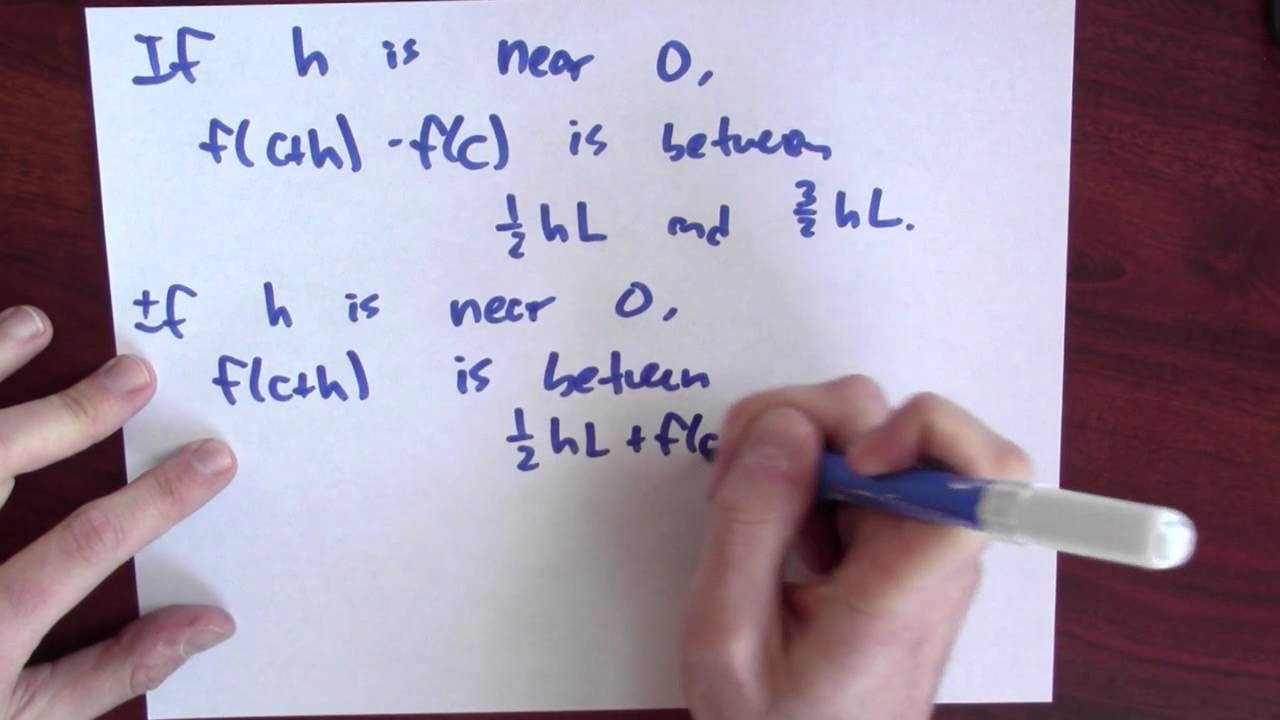 If h is near 0,
f(c+h) - f(c) is between
1/2 hL and 3/2 hL.
If h is near 0,
f(c+h) is between
1/2 hL + f(c